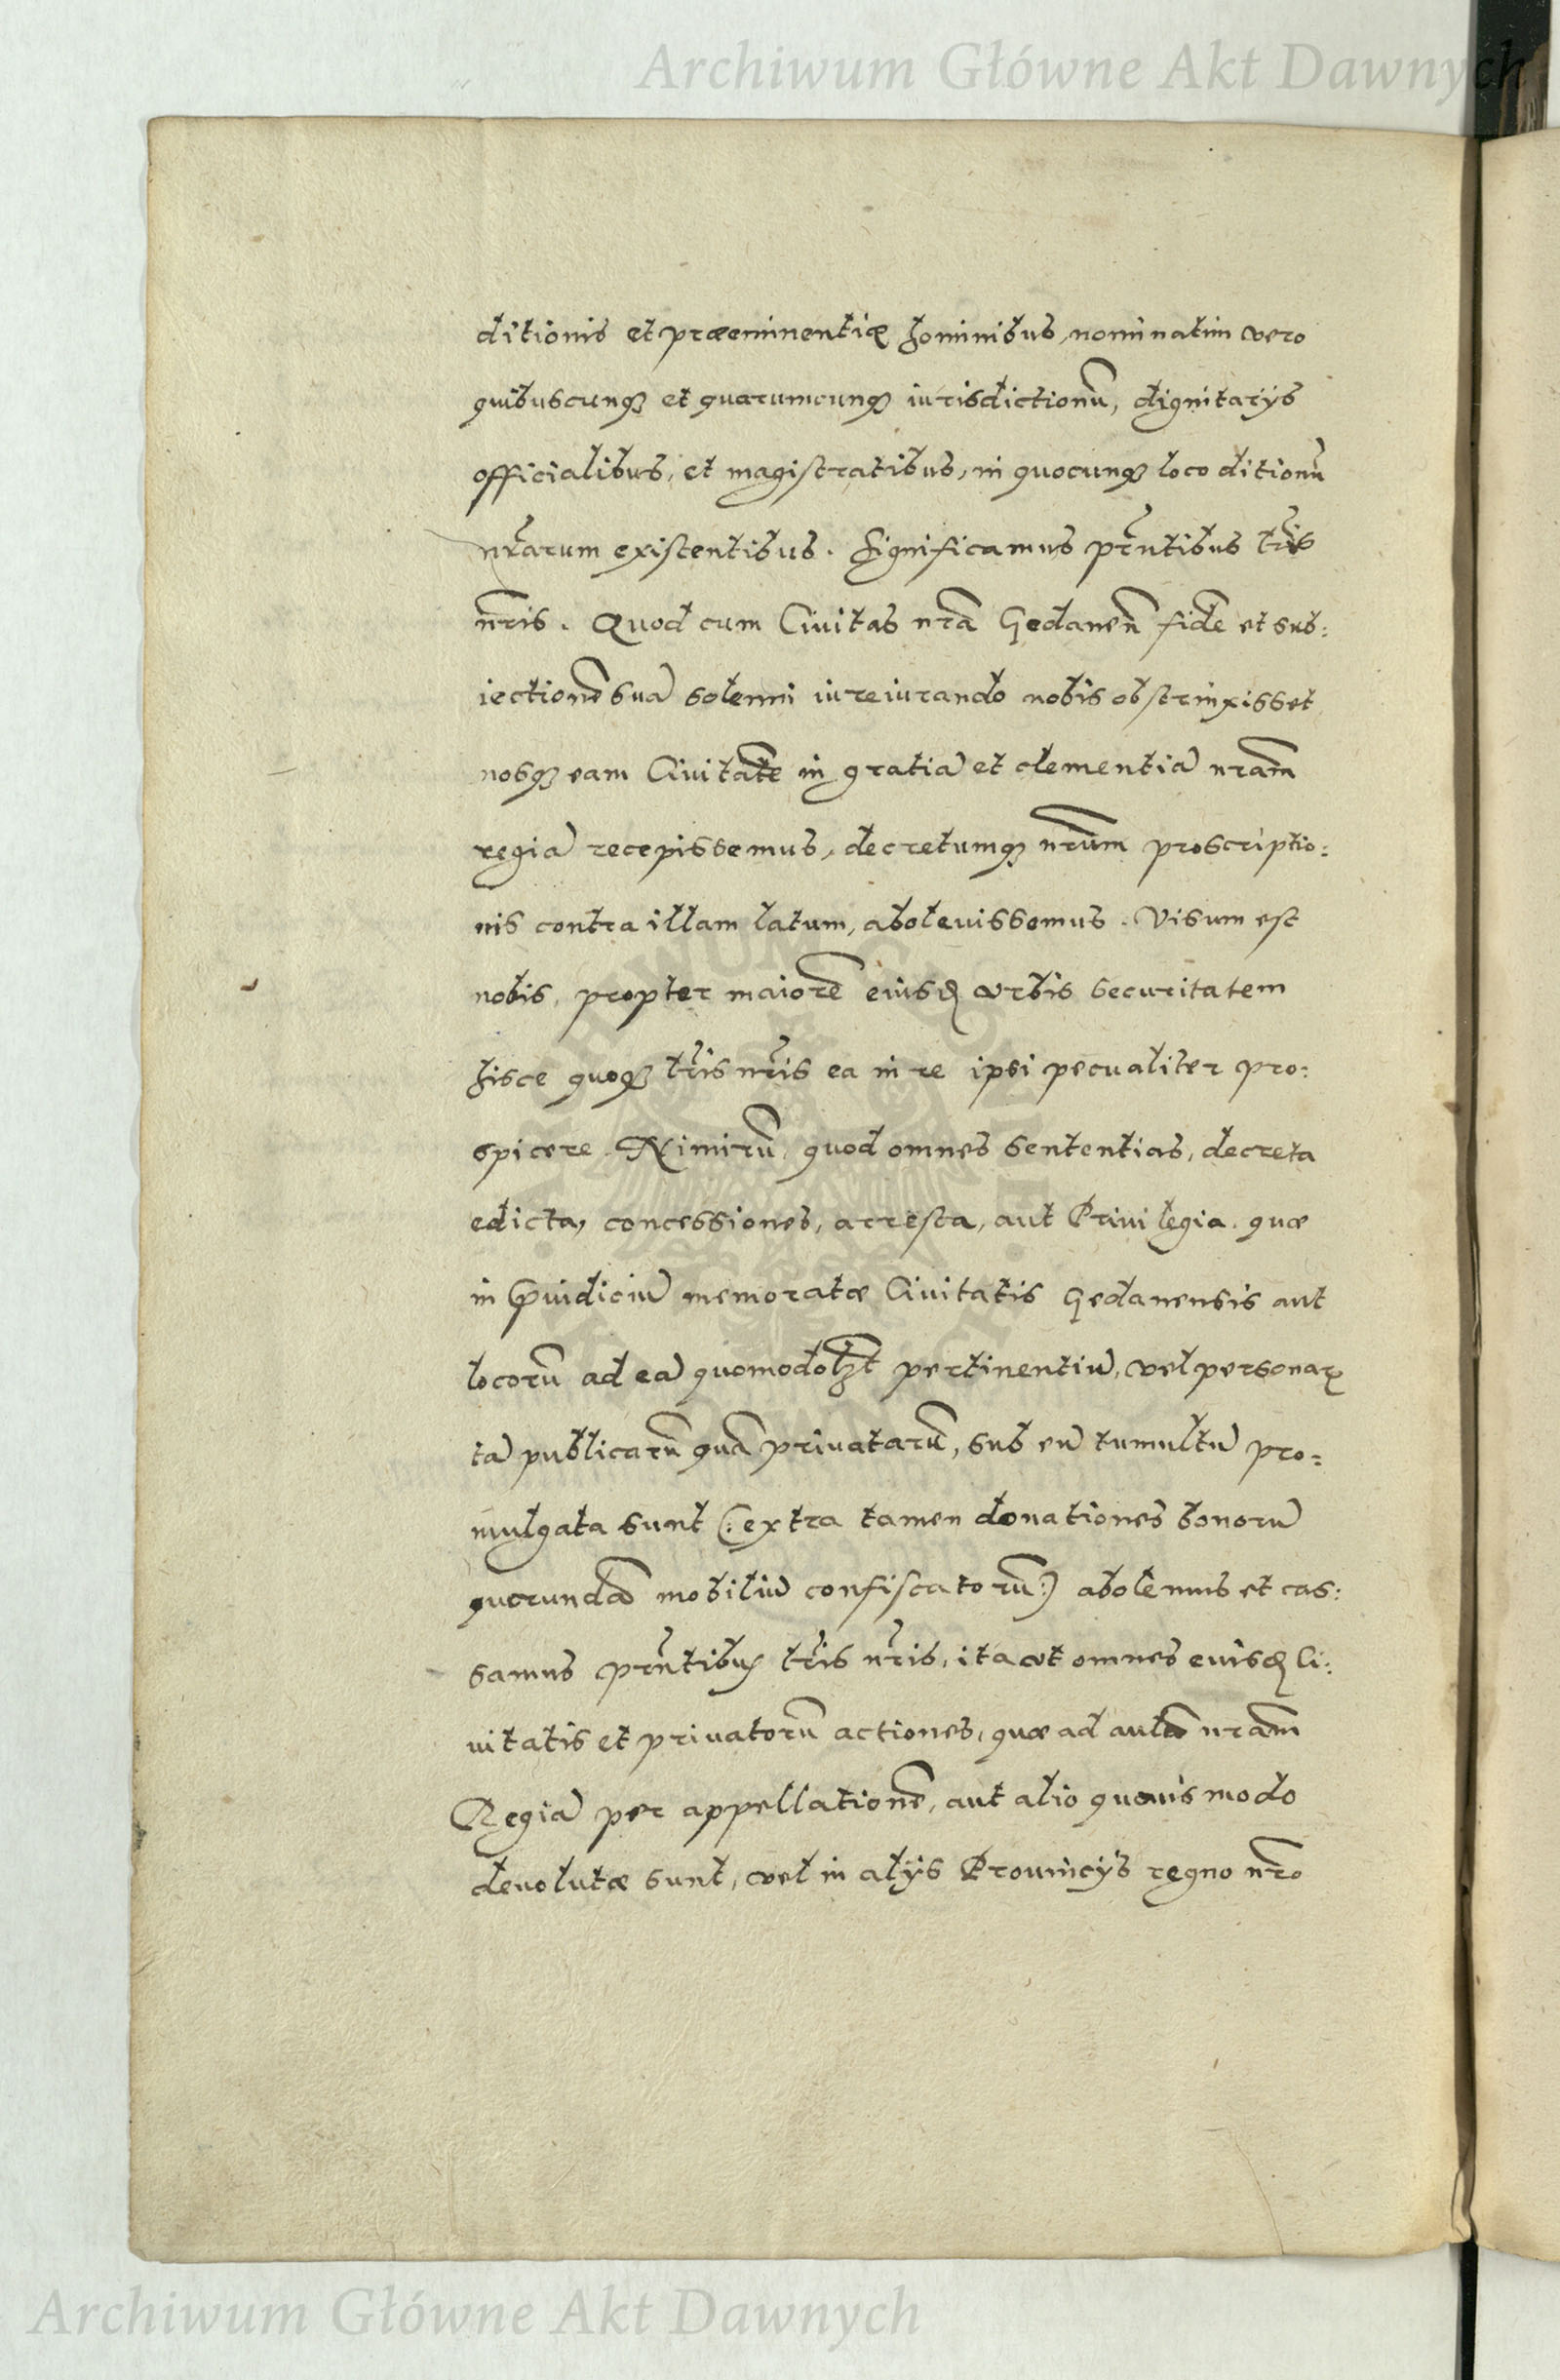 Archiwum Główne Akt Dawnych
ditionis et præeminentiæ hominibus, nominatim vero
quibuscunqȝ et quarumcunqȝ iurisdictionū, dignitarijs
officialibus, et magistratibus, in quocunqȝ loco ditionū
nr̃arum existentibus. Significamus pr̃ntibus lr̃is
nr̃is. Quod cum Civitas nr̃a Gedaneñ fidẽ et sub:
iectionẽ suã solenni iureiurando nobis obstrinxisset
nosqȝ eam Civitatẽ in gratiã et clementiã nr̃am
regiã recepissemus, decretumqȝ nr̃um proscriptio:
nis contra illam latum, abolevissemus. Visum est
nobis, propter maiorẽ eiusđ vrbis securitatem
hisce quoqȝ lr̃is nr̃is ea in re ipsi pecualiter pro:
spicere. Nimirũ, quod omnes sententias, decreta
edicta, concessiones, arresta, aut Privilegia. quæ
in Præiudiciũ memoratæ Civitatis Gedanensis aut
locorũ ad eã quomodolȝt pertinentiũ, vel personarꝝ
tã publicarũ quã privatarũ, sub eũ tumultũ pro:
mulgata sunt (: extra tamen donationes bonorũ
quorundã mobiliũ confiscatorũ :) abolemus et cas:
samus pr̃ntibus lr̃is nr̃is, ita vt omnes euisđ Ci:
uitatis et priuatorũ actiones, quæ ad aulã nr̃am
Regiã per appellationẽ, aut alio quouis modo
deuolutæ sunt, vel in alijs Prouincijs regno nr̃o
Archiwum Główne Akt Dawnych